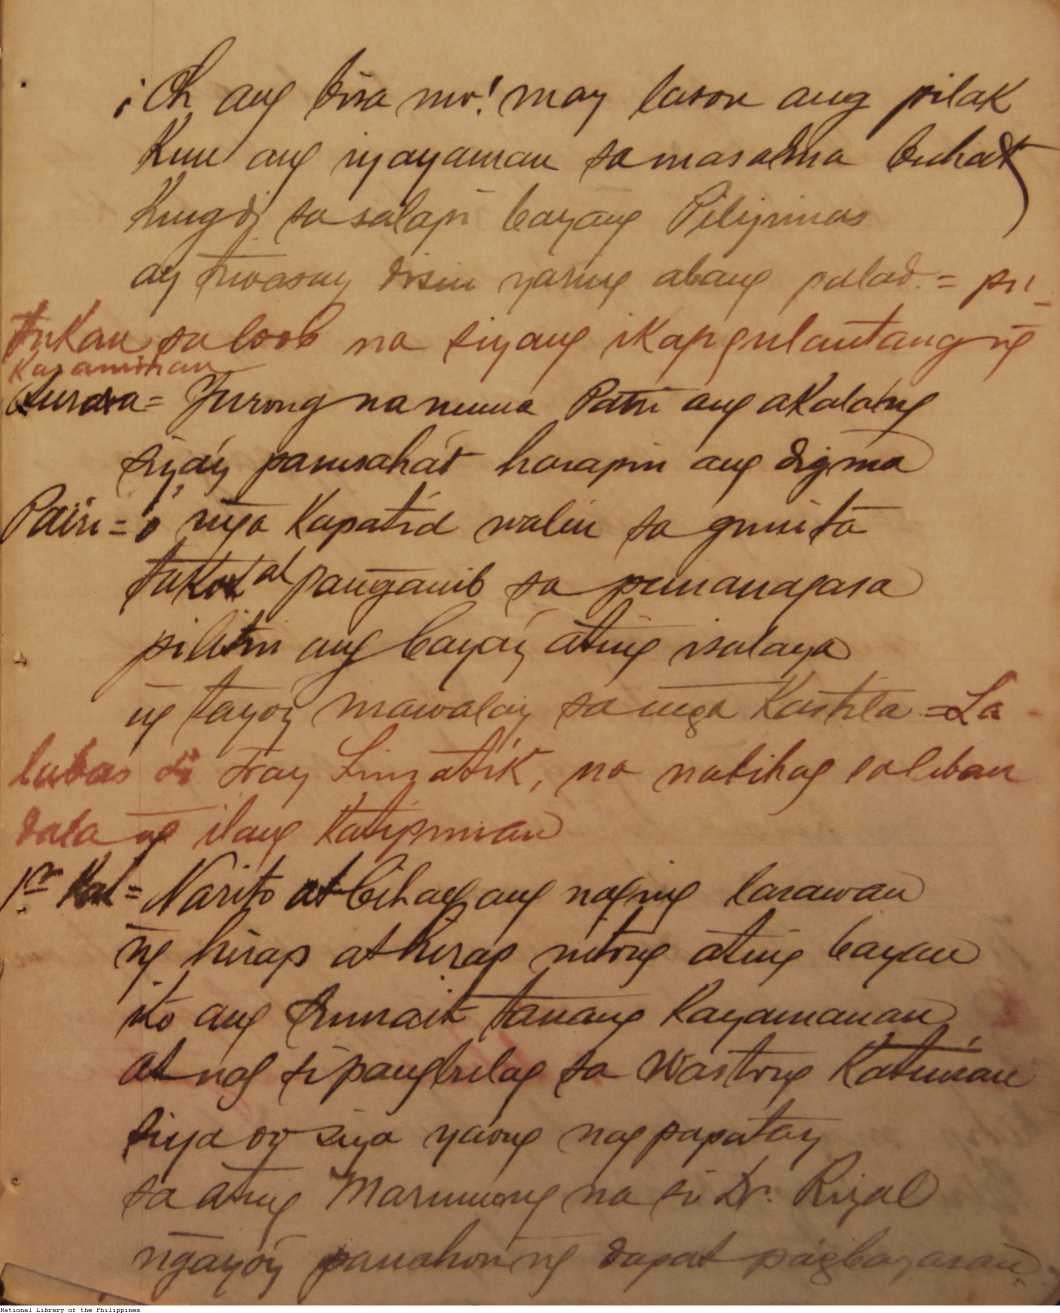 ¡Oh ang bisa mo! may lason ang pilak
Kun ang yayaman sa masama buhat
Kungdi sa salapi bayang Pilipinas
ay tiwasay disin yaring abang palad. = pu-
tukan sa loob na siyang ikapgulantang ng
Karamihan
Aurora = Yurong na muna Patri ang akalang
siyáy parusahát harapin ang digma
Patri = ó mga Kapatid walin sa gunita
takot at panganib sa pananagasa
pilitin ang bayáy ating isalaya
ng tayoy mawalay sa mga Kastila = La-
labas si Fray Limatik, na nabihag
dala ng ilang Katipunan
1er Kat = Narito at bihag ang naging larawan
ng hirap at hirap nitong ating bayan
ito ang tanang Kayamanan
at nag si pangbulag sa wastong Katuiran
siya oo siya yaong nagpapatay
sa ating Marunong na si Dr. Rizal
ngayóy panahon ng dapat págbayaran.